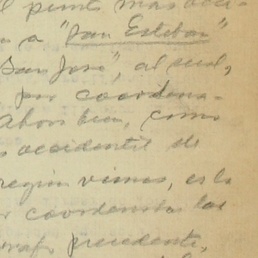 l punto mas occi-
a "San Esteban"
San José", al sud,
por coordena-
Ahora bien, como
occidental de
región vimos, es la
coordenadas las
rafo precedente,